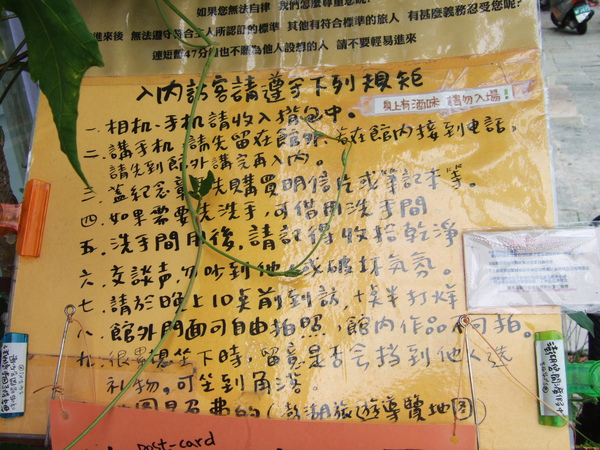 如果您無法自律 我們怎麼尊重您呢?
進來後 無法遵守符合主人所認可的標準 其他有符合標準的旅人 有甚麼義務忍受您呢?
連短暫47分 也不願為他人設想的人 請不要輕易進來
入內訪客請遵守下列規矩
身上有酒味 請勿入場
一. 相机、手机請收入揹包中。
二. 講手机, 請先留在館外, 若在館內接到电話,
請先到館外講完再入內。
三. 蓋紀念章 先購買明信片或筆記本等。
四. 如果需要先洗手,可借用洗手間
五. 洗手間用後, 請記得收拾乾淨
六. 交談声, 勿吵到他 或破坏氣氛。
七. 請於晚上10点前到訪, 十点半打烊
八. 館外門面可自由拍照, 館內作品不可拍。
九. 很累想坐下時, 留意是否会挡到他人选
礼物, 可坐到角落。
圖是免費的 (澎湖旅遊導覽地圖)
post-card